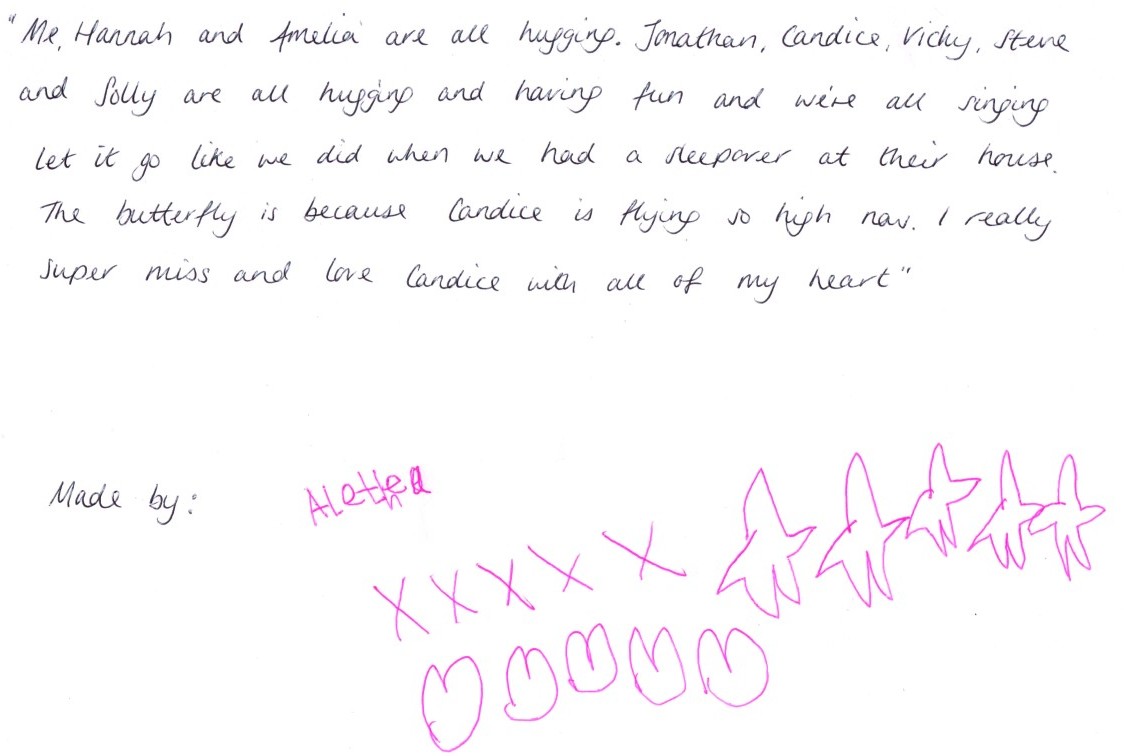 "Me, Hannah and Amelia are all hugging. Jonathan, Candice, Vicky, Steve
and Solly are all hugging and having fun and we're all singing
let it go like we did when we had a sleepover at their house.
The butterfly is because Candice is flying so high now. I really
super miss and love Candice with all of my heart"
Made by: ALethea
X X X X X